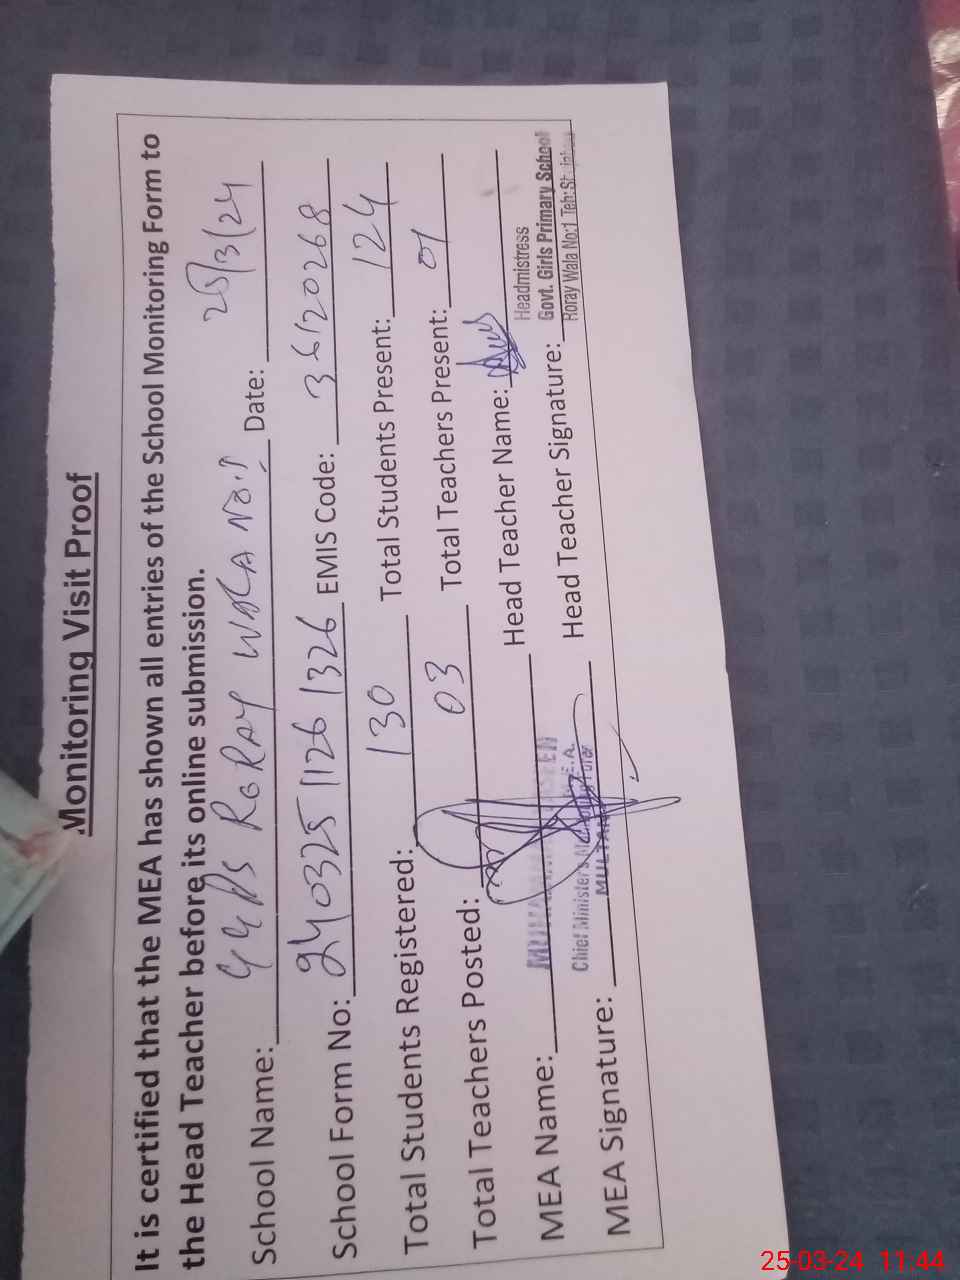 Monitoring Visit Proof
It is certified that the MEA has shown all entries of the School Monitoring Form to
the Head Teacher before its online submission.
School Name: GGPS RORAY WALA NO.1 Date: 25/3/24
School Form No: 24032511261326 EMIS Code: 36120268
Total Students Registered: 130 Total Students Present: 124
Total Teachers Posted: 03 Total Teachers Present: 01
MEA Name: Head Teacher Name:
Headmistress
Chief Minister's
MEA Signature: Head Teacher Signature:
Govt. Girls Primary School
Roray Wala No:1 Teh:
25-03-24 11:44